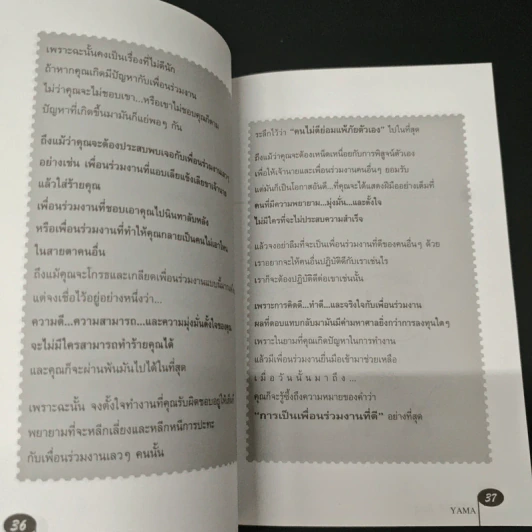 เพราะฉะนั้นคงเป็นเรื่องที่ไม่ดีนัก
ถ้าหากคุณเกิดมีปัญหากับเพื่อนร่วมงาน
ไม่ว่าคุณจะไม่ชอบเขา...หรือเขาไม่ชอบคุณก็ตาม
ปัญหาที่เกิดขึ้นมามันก็แย่พอๆ กัน
ถึงแม้ว่าคุณจะต้องประสบพบเจอกับเพื่อนร่วมงาน
อย่างเช่น เพื่อนร่วมงานที่แอบเลียแข้งเลียขาเจ้านาย
แล้วใส่ร้ายคุณ
เพื่อนร่วมงานที่ชอบเอาคุณไปนินทาลับหลัง
หรือเพื่อนร่วมงานที่ทำให้คุณกลายเป็นคนไม่เอาไหน
ในสายตาคนอื่น
ถึงแม้คุณจะโกรธและเกลียดเพื่อนร่วมงานแบบนี้
แต่จงเชื่อไว้อยู่อย่างหนึ่งว่า...
ความดี...ความสามารถ...และความมุ่งมั่นตั้งใจของคุณ
จะไม่มีใครสามารถทำร้ายคุณได้
และคุณก็จะผ่านพ้นมันไปได้ในที่สุด
เพราะฉะนั้น จงตั้งใจทำงานที่คุณรับผิดชอบอยู่ให้เต็มที่
พยายามที่จะหลีกเลี่ยงและหลีกหนีการปะทะ
กับเพื่อนร่วมงานเลวๆ คนนั้น
36
ระลึกไว้ว่า "คนไม่ดีย่อมแพ้ภัยตัวเอง" ไปในที่สุด
ถึงแม้ว่าคุณจะต้องเหน็ดเหนื่อยกับการพิสูจน์ตัวเอง
เพื่อให้เจ้านายและเพื่อนร่วมงานคนอื่นๆ ยอมรับ
แต่มันก็เป็นโอกาสอันดี...ที่คุณจะได้แสดงฝีมืออย่างเต็มที่
คนที่มีความพยายาม...มุ่งมั่น...และตั้งใจ
ไม่มีใครที่จะไม่ประสบความสำเร็จ
แล้วจงอย่าลืมที่จะเป็นเพื่อนร่วมงานที่ดีของคนอื่นๆ ด้วย
เราอยากจะให้คนอื่นปฏิบัติดีกับเราเช่นไร
เราก็จะต้องปฏิบัติดีต่อเขาเช่นนั้น
เพราะการคิดดี...ทำดี...และจริงใจกับเพื่อนร่วมงาน
ผลที่ตอบแทกลับมามันมีค่ามหาศาลยิ่งกว่าการลงทุนใดๆ
เพราะในยามที่คุณเกิดปัญหาในการทำงาน
แล้วมีเพื่อนร่วมงานยื่นมือเข้ามาช่วยเหลือ
เมื่อวันนั้นมาถึง...
คุณก็จะรู้ซึ้งถึงความหมายของคำว่า
"การเป็นเพื่อนร่วมงานที่ดี" อย่างที่สุด
YAMA 37